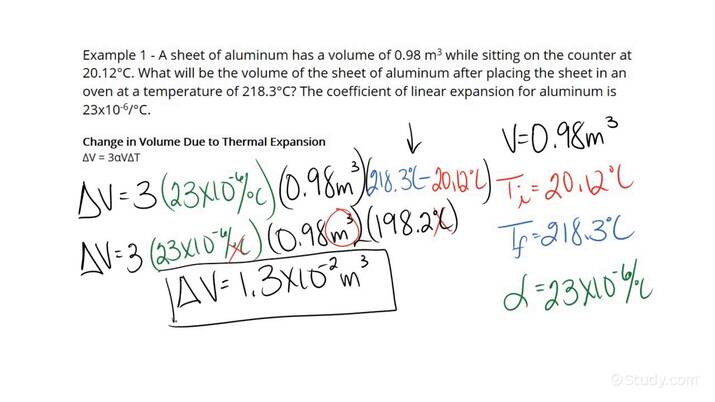 Example 1 - A sheet of aluminum has a volume of 0.98 m³ while sitting on the counter at
20.12°C. What will be the volume of the sheet of aluminum after placing the sheet in an
oven at a temperature of 218.3°C? The coefficient of linear expansion for aluminum is
23x10⁻⁶/°C.
Change in Volume Due to Thermal Expansion
ΔV = 3αVΔT
ΔV = 3 (23x10⁻⁶/°C) (0.98m³) (218.3°C - 20.12°C)
ΔV = 3 (23x10⁻⁶/°C) (0.98m³) (198.2°C)
ΔV = 1.3x10⁻² m³
V = 0.98m³
Ti = 20.12°C
Tf = 218.3°C
α = 23x10⁻⁶/°C
©Study.com